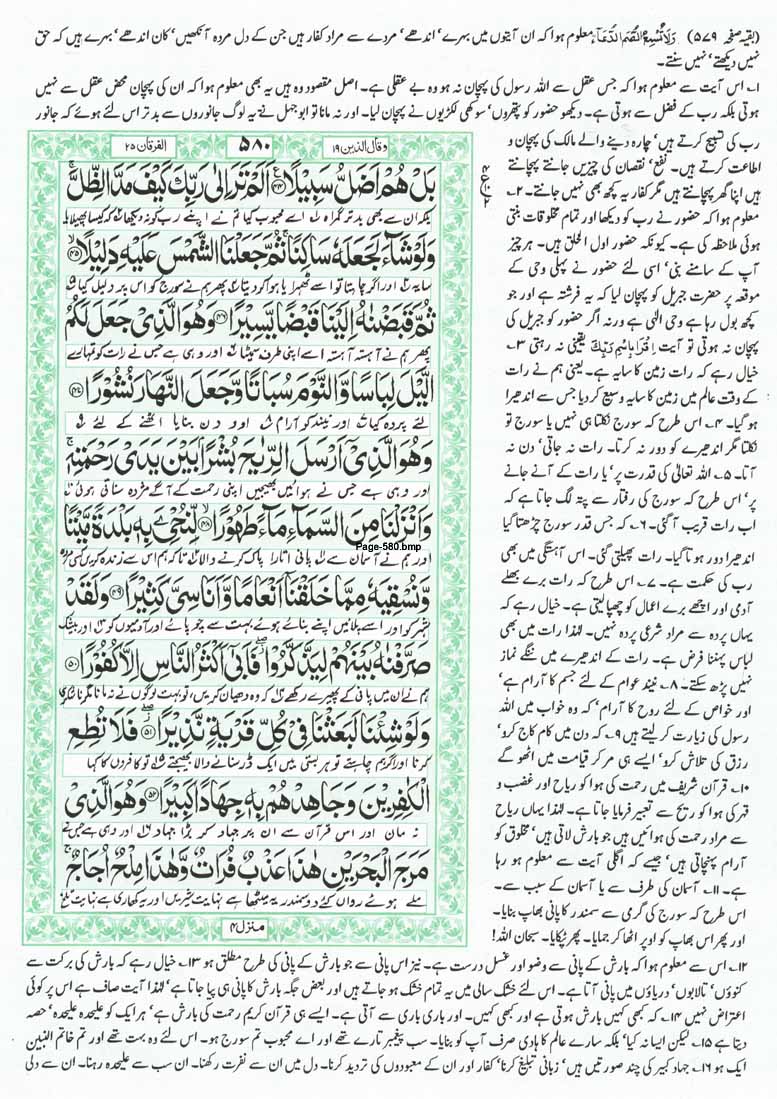 (بقیہ صفحہ ۵۷۹) وَلَا تُسْمِعُ الصُّمَّ الدُّعَآءَ معلوم ہوا کہ ان آیتوں میں بہرے' اندھے' مردے سے مراد کفار ہیں جن کے دل مردہ آنکھیں' کان اندھے' بہرے ہیں کہ حق
نہیں دیکھتے' نہیں سنتے۔
۱۔ اس آیت سے معلوم ہوا کہ جس عقل سے اللہ رسول کی پہچان نہ ہو وہ بے عقلی ہے۔ اصل مقصود وہ ہیں یہ بھی معلوم ہوا کہ ان کی پہچان محض عقل سے نہیں
ہوتی بلکہ رب کے فضل سے ہوتی ہے۔ دیکھو حضور کو پتھروں' سوکھی لکڑیوں نے پہچان لیا۔ اور نہ مانا تو ابوجہل نے یہ لوگ جانوروں سے بدتر اس لئے ہوئے کہ جانور
رب کی تسبیح کرتے ہیں' چارہ دینے والے مالک کی پہچان و
اطاعت کرتے ہیں۔ نفع' نقصان کی چیزیں جانتے پہچانتے
ہیں اپنا گھر پہچانتے ہیں مگر کفار یہ کچھ بھی نہیں جانتے۔ ۲۔
معلوم ہوا کہ حضور نے رب کو دیکھا اور تمام مخلوقات بنتی
ہوئی ملاحظہ کی ہے۔ کیونکہ حضور اول الخلق ہیں۔ ہر چیز
آپ کے سامنے بنی' اسی لئے حضور نے پہلی وحی کے
موقعہ پر حضرت جبریل کو پہچان لیا کہ یہ فرشتہ ہے اور جو
کچھ بول رہا ہے وحی الٰہی ہے ورنہ اگر حضور کو جبریل کی
پہچان نہ ہوتی تو آیت اِقْرَأْ بِاسْمِ رَبِّكَ یقینی نہ رہتی ۳۔
خیال رہے کہ رات زمین کا سایہ ہے۔ یعنی ہم نے رات
کے وقت عالم میں زمین کا سایہ وسیع کر دیا جس سے اندھیرا
ہو گیا۔ ۴۔ اس طرح کہ سورج نکلتا ہی نہیں یا سورج تو
نکلتا مگر اندھیرے کو دور نہ کرتا۔ رات نہ جاتی' دن نہ
آتا۔ ۵۔ اللہ تعالیٰ کی قدرت پر' یا رات کے آنے جانے
پر' اس طرح کہ سورج کی رفتار سے پتہ لگ جاتا ہے کہ
اب رات قریب آ گئی۔ ۶۔ کہ جس قدر سورج چڑھتا گیا
اندھیرا دور ہوتا گیا۔ رات پھیلتی گئی۔ اس آہستگی میں بھی
رب کی حکمت ہے۔ ۷۔ اس طرح کہ رات برے بھلے
آدمی اور اچھے برے اعمال کو چھپا لیتی ہے۔ خیال رہے کہ
یہاں پردہ سے مراد شرعی پردہ نہیں۔ لہٰذا رات میں بھی
لباس پہننا فرض ہے۔ رات کے اندھیرے میں ننگے نماز
نہیں پڑھ سکتے۔ ۸۔ نیند عوام کے لئے جسم کا آرام ہے'
اور خواص کے لئے روح کا آرام' کہ وہ خواب میں اللہ
رسول کی زیارت کر لیتے ہیں ۹۔ کہ دن میں کام کاج کرو'
رزق کی تلاش کرو' ایسے ہی مر کر قیامت میں اٹھو گے
۱۰۔ قرآن شریف میں رحمت کی ہوا کو ریاح اور غضب و
قہر کی ہوا کو ریح سے تعبیر فرمایا جاتا ہے۔ لہٰذا یہاں ریاح
سے مراد رحمت کی ہوائیں ہیں جو بارش لاتی ہیں' مخلوق کو
آرام پہنچاتی ہیں' جیسے کہ اگلی آیت سے معلوم ہو رہا
ہے۔ ۱۱۔ آسمان کی طرف سے یا آسمان کے سبب سے۔
اس طرح کہ سورج کی گرمی سے سمندر کا پانی بھاپ بنایا۔
اور پھر اس بھاپ کو اوپر اٹھا کر جمایا۔ پھر ٹپکایا۔ سبحان اللہ!
وقال الذین ۱۹ ۵۸۰ الفرقان ۲۵
بَلْ هُمْ اَضَلُّ سَبِيْلًا ﴿۴۴﴾ اَلَمْ تَرَ اِلٰى رَبِّكَ كَيْفَ مَدَّ الظِّلَّ ۚ
بلکہ ان سے بھی بدتر گمراہ اے محبوب کیا تم نے اپنے رب کو نہ دیکھا کہ کیسا پھیلایا
وَلَوْ شَآءَ لَجَعَلَهٗ سَاكِنًا ۚ ثُمَّ جَعَلْنَا الشَّمْسَ عَلَيْهِ دَلِيْلًا ﴿۴۵﴾
سایہ اور اگر چاہتا تو اسے ٹھہرایا ہوا کر دیتا پھر ہم نے سورج کو اس پر دلیل کیا
ثُمَّ قَبَضْنٰهُ اِلَيْنَا قَبْضًا يَّسِيْرًا ﴿۴۶﴾ وَهُوَ الَّذِيْ جَعَلَ لَكُمُ
پھر ہم نے آہستہ آہستہ اسے اپنی طرف سمیٹا اور وہی ہے جس نے رات کو تمہارے
الَّيْلَ لِبَاسًا وَّالنَّوْمَ سُبَاتًا وَّجَعَلَ النَّهَارَ نُشُوْرًا ﴿۴۷﴾
لئے پردہ کیا اور نیند کو آرام اور دن بنایا اٹھنے کے لئے
وَهُوَ الَّذِيْٓ اَرْسَلَ الرِّيٰحَ بُشْرًۢا بَيْنَ يَدَيْ رَحْمَتِهٖ ۚ
اور وہی ہے جس نے ہوائیں بھیجیں اپنی رحمت کے آگے مژدہ سناتی ہوئی
وَاَنْزَلْنَا مِنَ السَّمَآءِ مَآءً طَهُوْرًا ﴿۴۸﴾ لِّنُحْيِۦ بِهٖ بَلْدَةً مَّيْتًا
Page-580.bmp
اور ہم نے آسمان سے پانی اتارا پاک کرنے والا تاکہ ہم اس سے زندہ کریں کسی مردہ
وَّنُسْقِيَهٗ مِمَّا خَلَقْنَآ اَنْعَامًا وَّاَنَاسِيَّ كَثِيْرًا ﴿۴۹﴾ وَلَقَدْ
شہر کو اور اسے پلائیں اپنے بنائے ہوئے بہت سے چوپائے اور آدمیوں کو اور بیشک
صَرَّفْنٰهُ بَيْنَهُمْ لِيَذَّكَّرُوْا ۖ فَاَبٰٓى اَكْثَرُ النَّاسِ اِلَّا كُفُوْرًا ﴿۵۰﴾
ہم نے ان میں پانی کے پھیرے رکھے کہ وہ دھیان کریں تو بہت لوگوں نے نہ مانا مگر ناشکری
وَلَوْ شِئْنَا لَبَعَثْنَا فِيْ كُلِّ قَرْيَةٍ نَّذِيْرًا ﴿۵۱﴾ فَلَا تُطِعِ
کرنا اور اگر ہم چاہتے تو ہر بستی میں ایک ڈر سنانے والا بھیجتے تو کافروں کا کہا
الْكٰفِرِيْنَ وَجَاهِدْهُمْ بِهٖ جِهَادًا كَبِيْرًا ﴿۵۲﴾ وَهُوَ الَّذِيْ
نہ مان اور اس قرآن سے ان پر جہاد کر بڑا جہاد اور وہی ہے جس نے
مَرَجَ الْبَحْرَيْنِ هٰذَا عَذْبٌ فُرَاتٌ وَّهٰذَا مِلْحٌ اُجَاجٌ ۚ
ملے ہوئے رواں کئے دو سمندر یہ میٹھا ہے نہایت شیریں اور یہ کھاری ہے نہایت تلخ
منزل ۴
۱۲۔ اس سے معلوم ہوا کہ بارش کے پانی سے وضو اور غسل درست ہے۔ نیز اس پانی سے جو بارش کے پانی کی طرح مطلق ہو ۱۳۔ خیال رہے کہ بارش کی برکت سے
کنوؤں' تالابوں' دریاؤں میں پانی آتا ہے۔ اس لئے خشک سالی میں یہ تمام خشک ہو جاتے ہیں اور بعض جگہ بارش کا پانی ہی پیا جاتا ہے' لہٰذا آیت صاف ہے اس پر کوئی
اعتراض نہیں ۱۴۔ کہ کبھی کہیں بارش ہوتی ہے اور کبھی کہیں۔ اور باری باری سے آتی ہے۔ ایسے ہی قرآن کریم رحمت کی بارش ہے' ہر ایک کو علیحدہ علیحدہ' حصہ
دیتا ہے ۱۵۔ لیکن ایسا نہ کیا' بلکہ سارے عالم کا ہادی صرف آپ کو بنایا۔ سب پیغمبر تارے تھے اور اے محبوب تم سورج ہو۔ اس لئے وہ بہت تھے اور تم خاتم النبیین
ایک ہو ۱۶۔ جہاد کبیر کی چند صورتیں ہیں' زبانی تبلیغ کرنا' کفار اور ان کے معبودوں کی تردید کرنا۔ دل میں ان سے نفرت رکھنا۔ ان سب سے علیحدہ رہنا۔ ان سے دلی